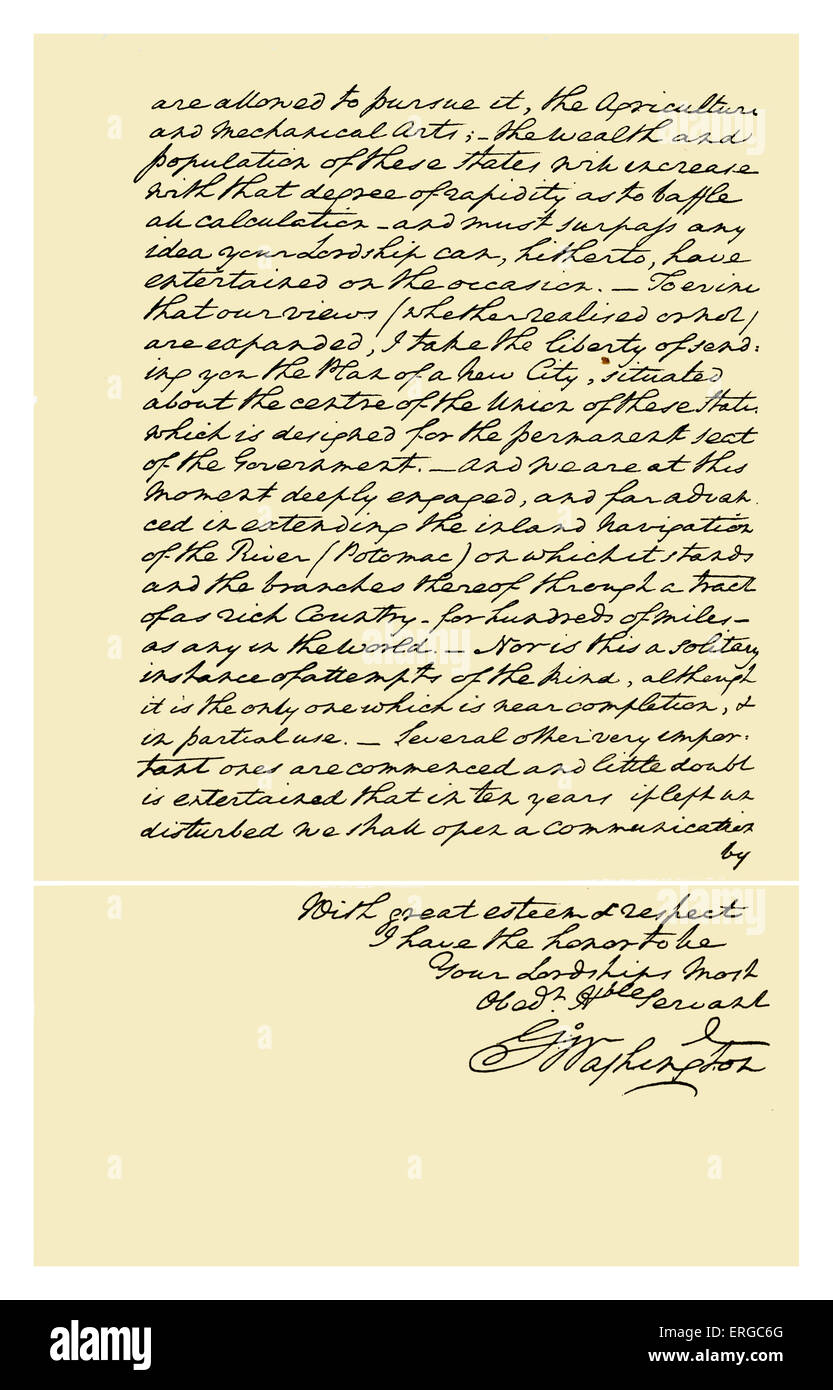 are allowed to pursue it, the Agriculture
and Mechanical Arts; – the wealth and
population of these States will increase
with that degree of rapidity as to baffle
all calculation – and must surpass any
idea your Lordship can, hitherto, have
entertained on the occasion. – To evince
that our views (whether realised or not)
are expanded, I take the liberty of send:
ing you the Plan of a New City, situated
about the centre of the Union of these States
which is designed for the permanent seat
of the Government. – And we are at this
moment deeply engaged, and far advan
ced in extending the inland Navigation
of the River (Potomac) on which it stands
and the branches thereof through a tract
of as rich Country – for hundreds of miles –
as any in the world. – Nor is this a solitary
instance of attempts of the kind, although
it is the only one which is near completion, &
in partial use. – Several other very impor:
tant ones are commenced and little doubt
is entertained that in ten years if left un
disturbed we shall open a communication
by
With great esteem & respect
I have the honor to be
Your Lordships Most
Obedt. Hble Servant
Go Washington
alamy
Image ID: ERGC6G
www.alamy.com